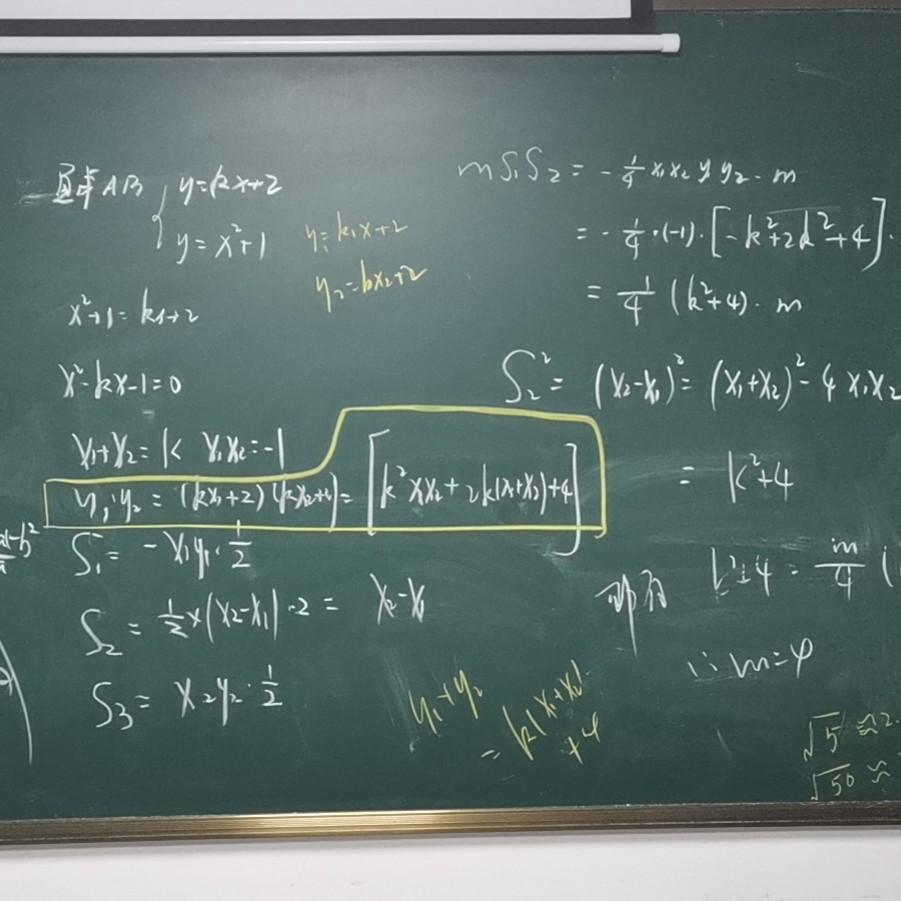 直线AB { y=kx+2
y=x²+1
y₁=k₁x+2
y₂=kx₂+2
x²+1=kx+2
x²-kx-1=0
x₁+x₂=k x₁x₂=-1
y₁·y₂=(kx₁+2)(kx₂+2)=[k²x₁x₂+2k(x₁+x₂)+4]
S₁=-x₁y₁·1/2
S₂=1/2×(x₂-x₁)·2=x₂-x₁
S₃=x₂y₂·1/2
y₁+y₂
=k(x₁+x₂)
+4
mS₁S₂=-1/4x₁x₂y₁y₂·m
=-1/4·(-1)·[-k²+2k²+4]·
=1/4(k²+4)·m
S₂²=(x₂-x₁)²=(x₁+x₂)²-4x₁x₂
=k²+4
即有 k²+4=m/4(
∴m=4
√5≈2.
√50≈